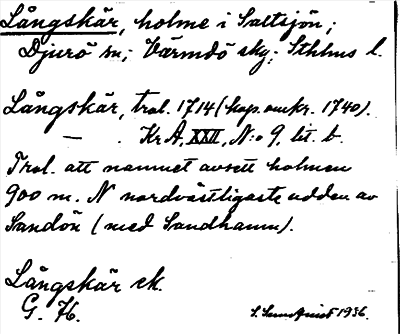 Långskär, holme i Saltsjön;
Djurö sn; Värmdö skg; Sthlms l.
Långskär, trol. 1714 (kop. omkr. 1740).
— . Kr. A, XXII, N:o 9, lit. b.
Trol. att namnet avsett holmen
900 m. N nordvästligaste udden av
Sandön (med Sandhamn).
Långskär ek.
G. 76.
S. Sundqvist 1936.